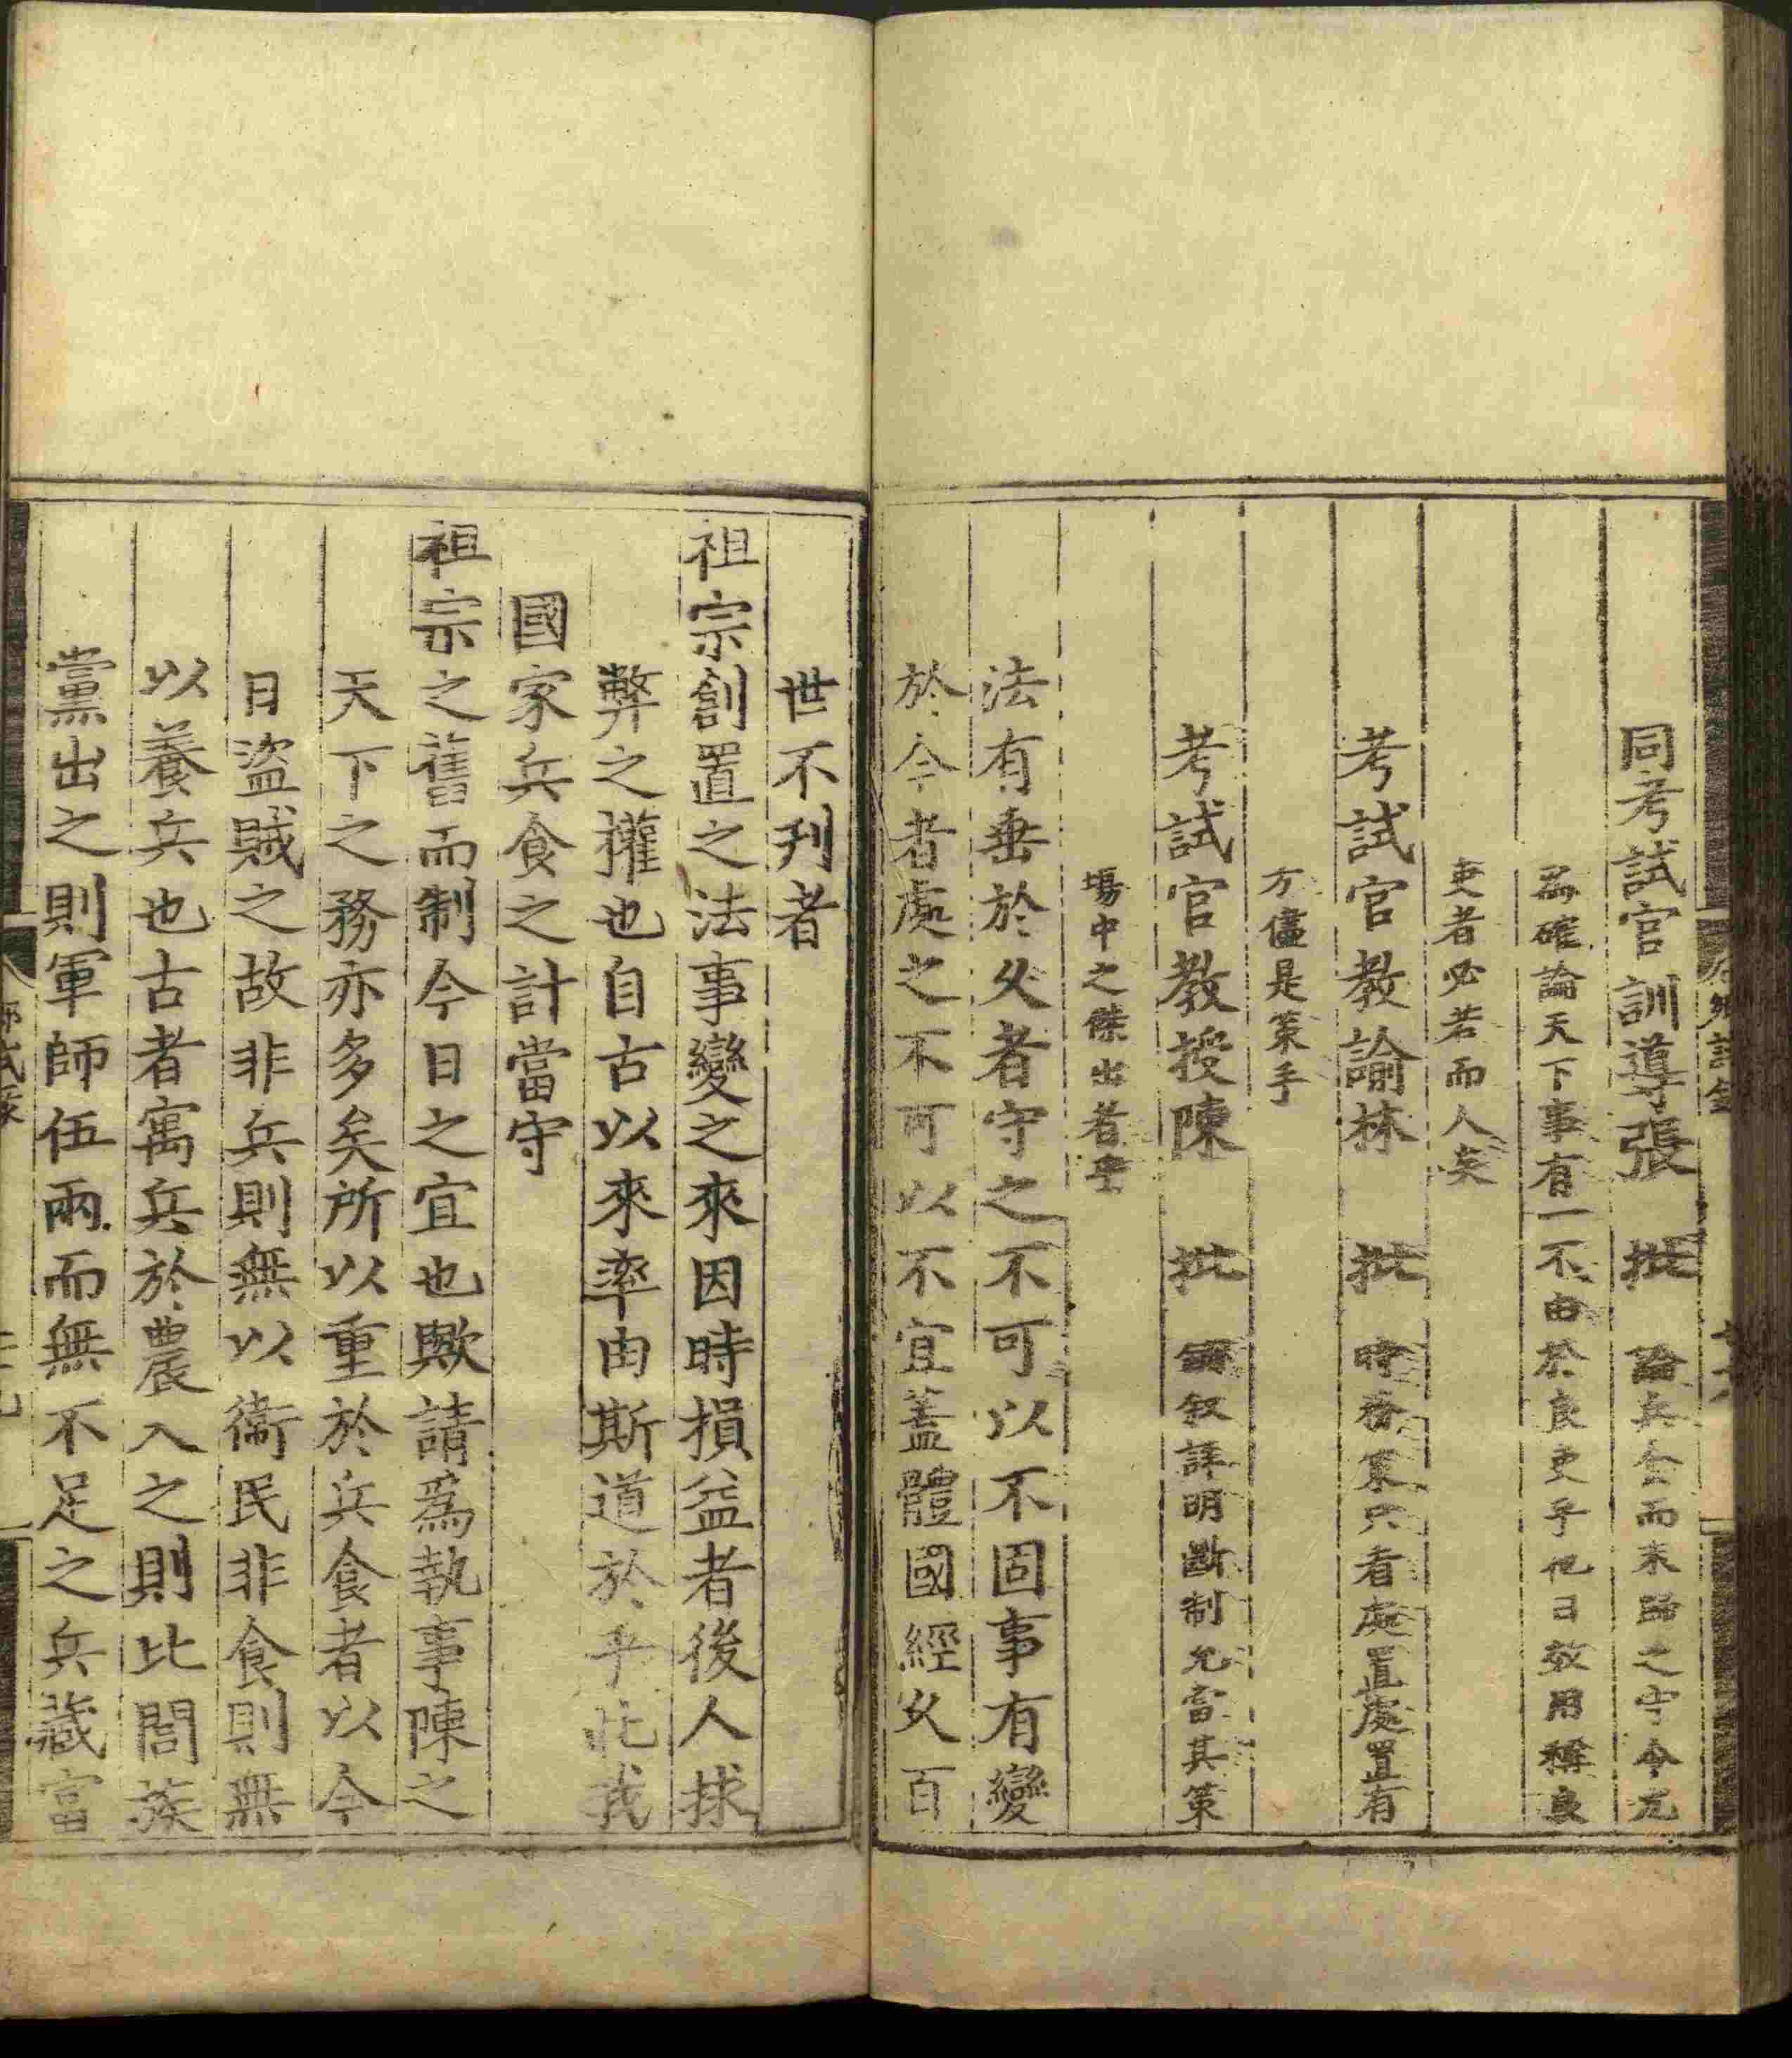 同考試官訓導張 批 論兵食而末歸之守令尤
爲確論天下事有一不由於良吏乎他日效用稱良
吏者必若而人矣
考試官教諭林 批 時務策只看處置處置有
方儘是策手
考試官教授陳 批 叙詳明斷制允當其策
場中之傑出者乎
法有垂於久者守之不可以不固事有變
於今者處之不可以不宜蓋體國經久百
世不刋者
祖宗創置之法事變之來因時損益者後人捄
弊之權也自古以來率由斯道於乎此我
國家兵食之計當守
祖宗之舊而制今日之宜也歟請爲執事陳之
天下之務亦多矣所以重於兵食者以今
日盜賊之故非兵則無以衞民非食則無
以養兵也古者寓兵於農入之則比閭族
黨出之則軍師伍兩而無不足之兵藏富